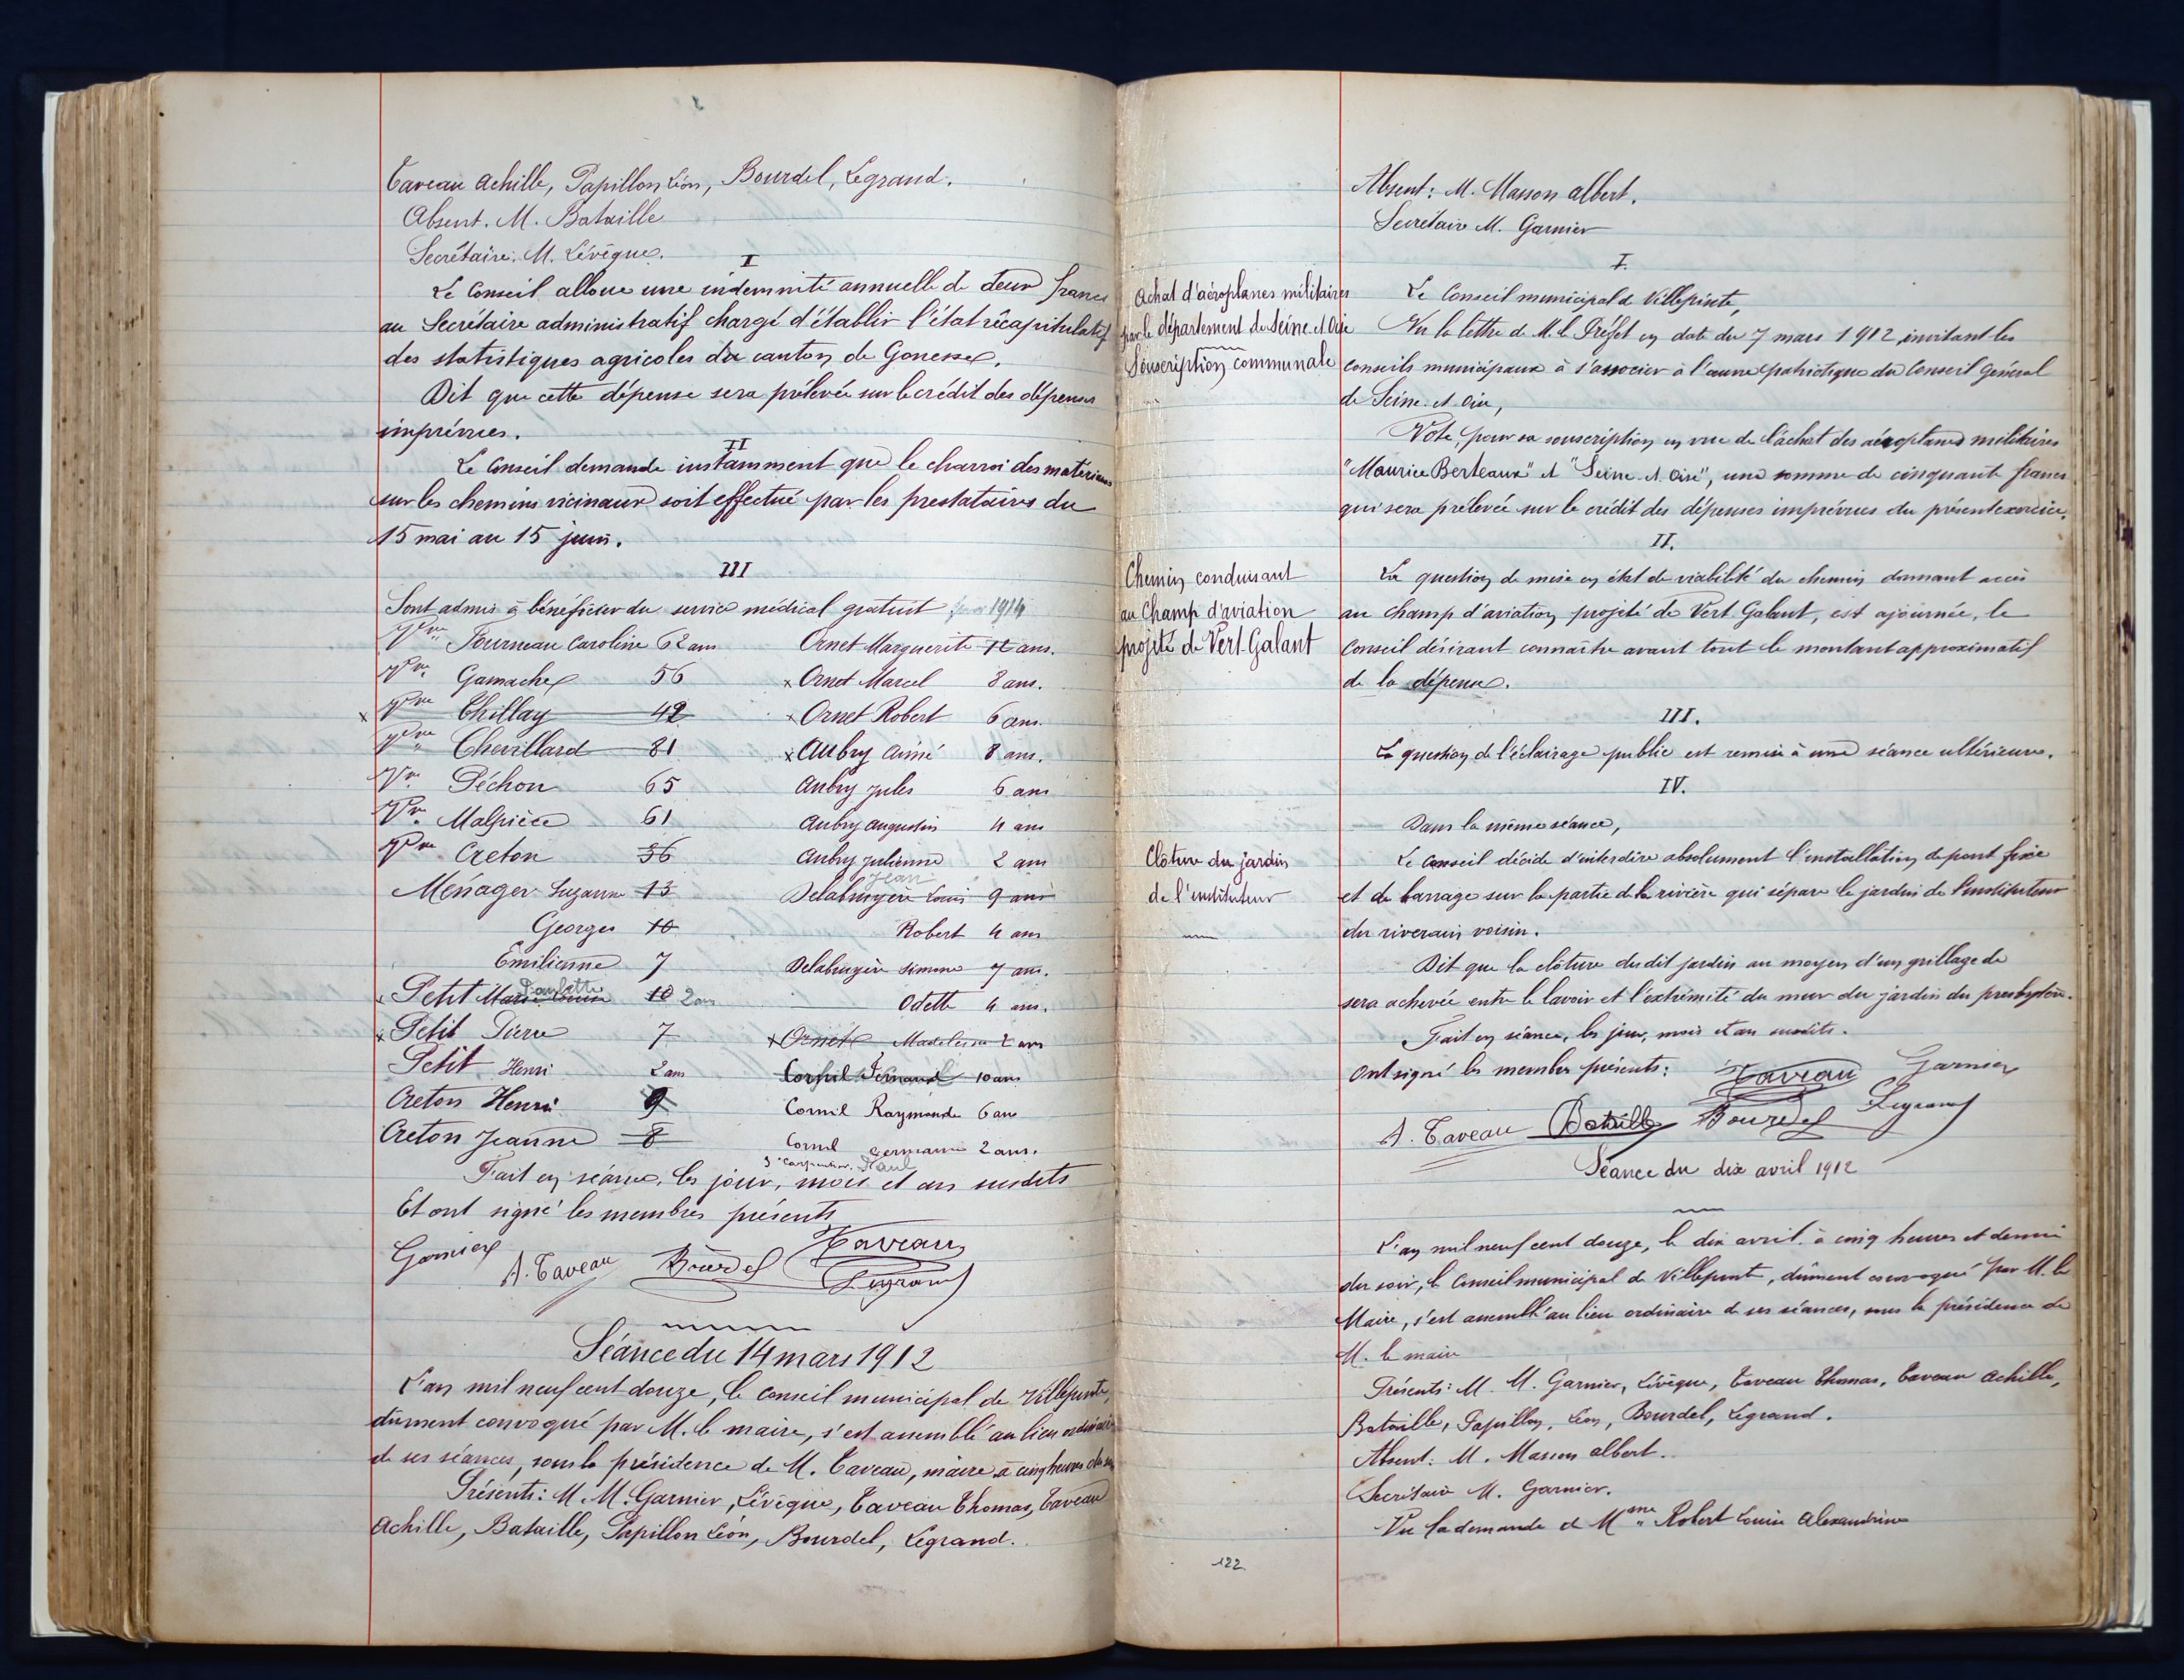 Taveau Achille, Papillon Léon, Bourdel, Legrand.
Absent. M. Bataille
Secrétaire. M. Lévêque.
I
Le Conseil alloue une indemnité annuelle de deux francs
au Secrétaire administratif chargé d'établir l'état récapitulatif
des statistiques agricoles du canton de Gonesse.
Dit que cette dépense sera prélevée sur le crédit des dépenses
imprévues.
II
Le Conseil demande instamment que le charroi des matériaux
sur les chemins vicinaux soit effectué par les prestataires du
15 mai au 15 juin.
III
Sont admis à bénéficier du service médical gratuit 1914
Vve Fourneau Caroline 62 ans
Vve Gamache 56
x Vve Chillay 42
Vve Chevillard 81
Vve Péchon 65
Vve Malpièce 61
Vve Creton 36
Ménager Suzanne 13
Georges 10
Emilienne 7
x Petit Marie Louise Paulette 10 2 ans
x Petit Pierre 7
Petit Henri 2 ans
Creton Henri 9
Creton Jeanne 8
Ornet Marguerite 12 ans.
x Ornet Marcel 8 ans.
x Ornet Robert 6 ans.
x Aubry Aimé 8 ans.
Aubry Jules 6 ans
Aubry Augustin 4 ans
Aubry Julienne 2 ans
Jean
Delabruyère Louis 9 ans
Robert 4 ans
Delabruyère Simone 7 ans.
Odette 4 ans.
x Ornet Madeleine 2 ans
Cornil Fernand 10 ans
Cornil Raymonde 6 ans
Cornil Germaine 2 ans.
Carpentier Paul
Fait en séance, les jour, mois et an susdits
Et ont signé les membres présents
Garnier A. Taveau Bourdel Taveau Legrand
Séance du 14 mars 1912
L'an mil neuf cent douze, le conseil municipal de Villepinte,
dûment convoqué par M. le maire, s'est assemblé au lieu ordinaire
de ses séances, sous la présidence de M. Taveau, maire à cinq heures du soir
Présents: M. M. Garnier, Lévêque, Taveau Thomas, Taveau
Achille, Bataille, Papillon Léon, Bourdel, Legrand.
Absent: M. Masson Albert.
Secrétaire M. Garnier
I.
Achat d'aéroplanes militaires
par le département de Seine et Oise
Souscription communale
Le Conseil municipal de Villepinte,
Vu la lettre de M. le Préfet en date du 7 mars 1912, invitant les
conseils municipaux à s'associer à l'œuvre patriotique du Conseil général
de Seine-et-Oise,
Vote, pour sa souscription en vue de l'achat des aéroplanes militaires
"Maurice Berteaux" et "Seine-et-Oise", une somme de cinquante francs
qui sera prélevée sur le crédit des dépenses imprévues du présent exercice.
II.
Chemin conduisant
au Champ d'aviation
projeté de Vert-Galant
La question de mise en état de viabilité du chemin donnant accès
au champ d'aviation projeté de Vert Galant, est ajournée, le
Conseil désirant connaître avant tout le montant approximatif
de la dépense.
III.
La question de l'éclairage public est remise à une séance ultérieure.
IV.
Dans la même séance,
Clôture du jardin
de l'instituteur
Le Conseil décide d'interdire absolument l'installation de pont fixe
et de barrage sur la partie de la rivière qui sépare le jardin de l'instituteur
du riverain voisin.
Dit que la clôture du dit jardin au moyen d'un grillage de
sera achevée entre le lavoir et l'extrémité du mur du jardin du presbytère.
Fait en séance, les jour, mois et an susdits.
Ont signé les membres présents: Taveau Garnier
A. Taveau Bataille Bourdel Legrand
Séance du dix avril 1912
L'an mil neuf cent douze, le dix avril à cinq heures et demie
du soir, le Conseil municipal de Villepinte, dûment convoqué par M. le
Maire, s'est assemblé au lieu ordinaire de ses séances, sous la présidence de
M. le maire
Présents: M. M. Garnier, Lévêque, Taveau Thomas, Taveau Achille,
Bataille, Papillon, Léon, Bourdel, Legrand.
Absent: M. Masson Albert.
Secrétaire M. Garnier.
Vu la demande de Mme Robert Louise Alexandrine
122